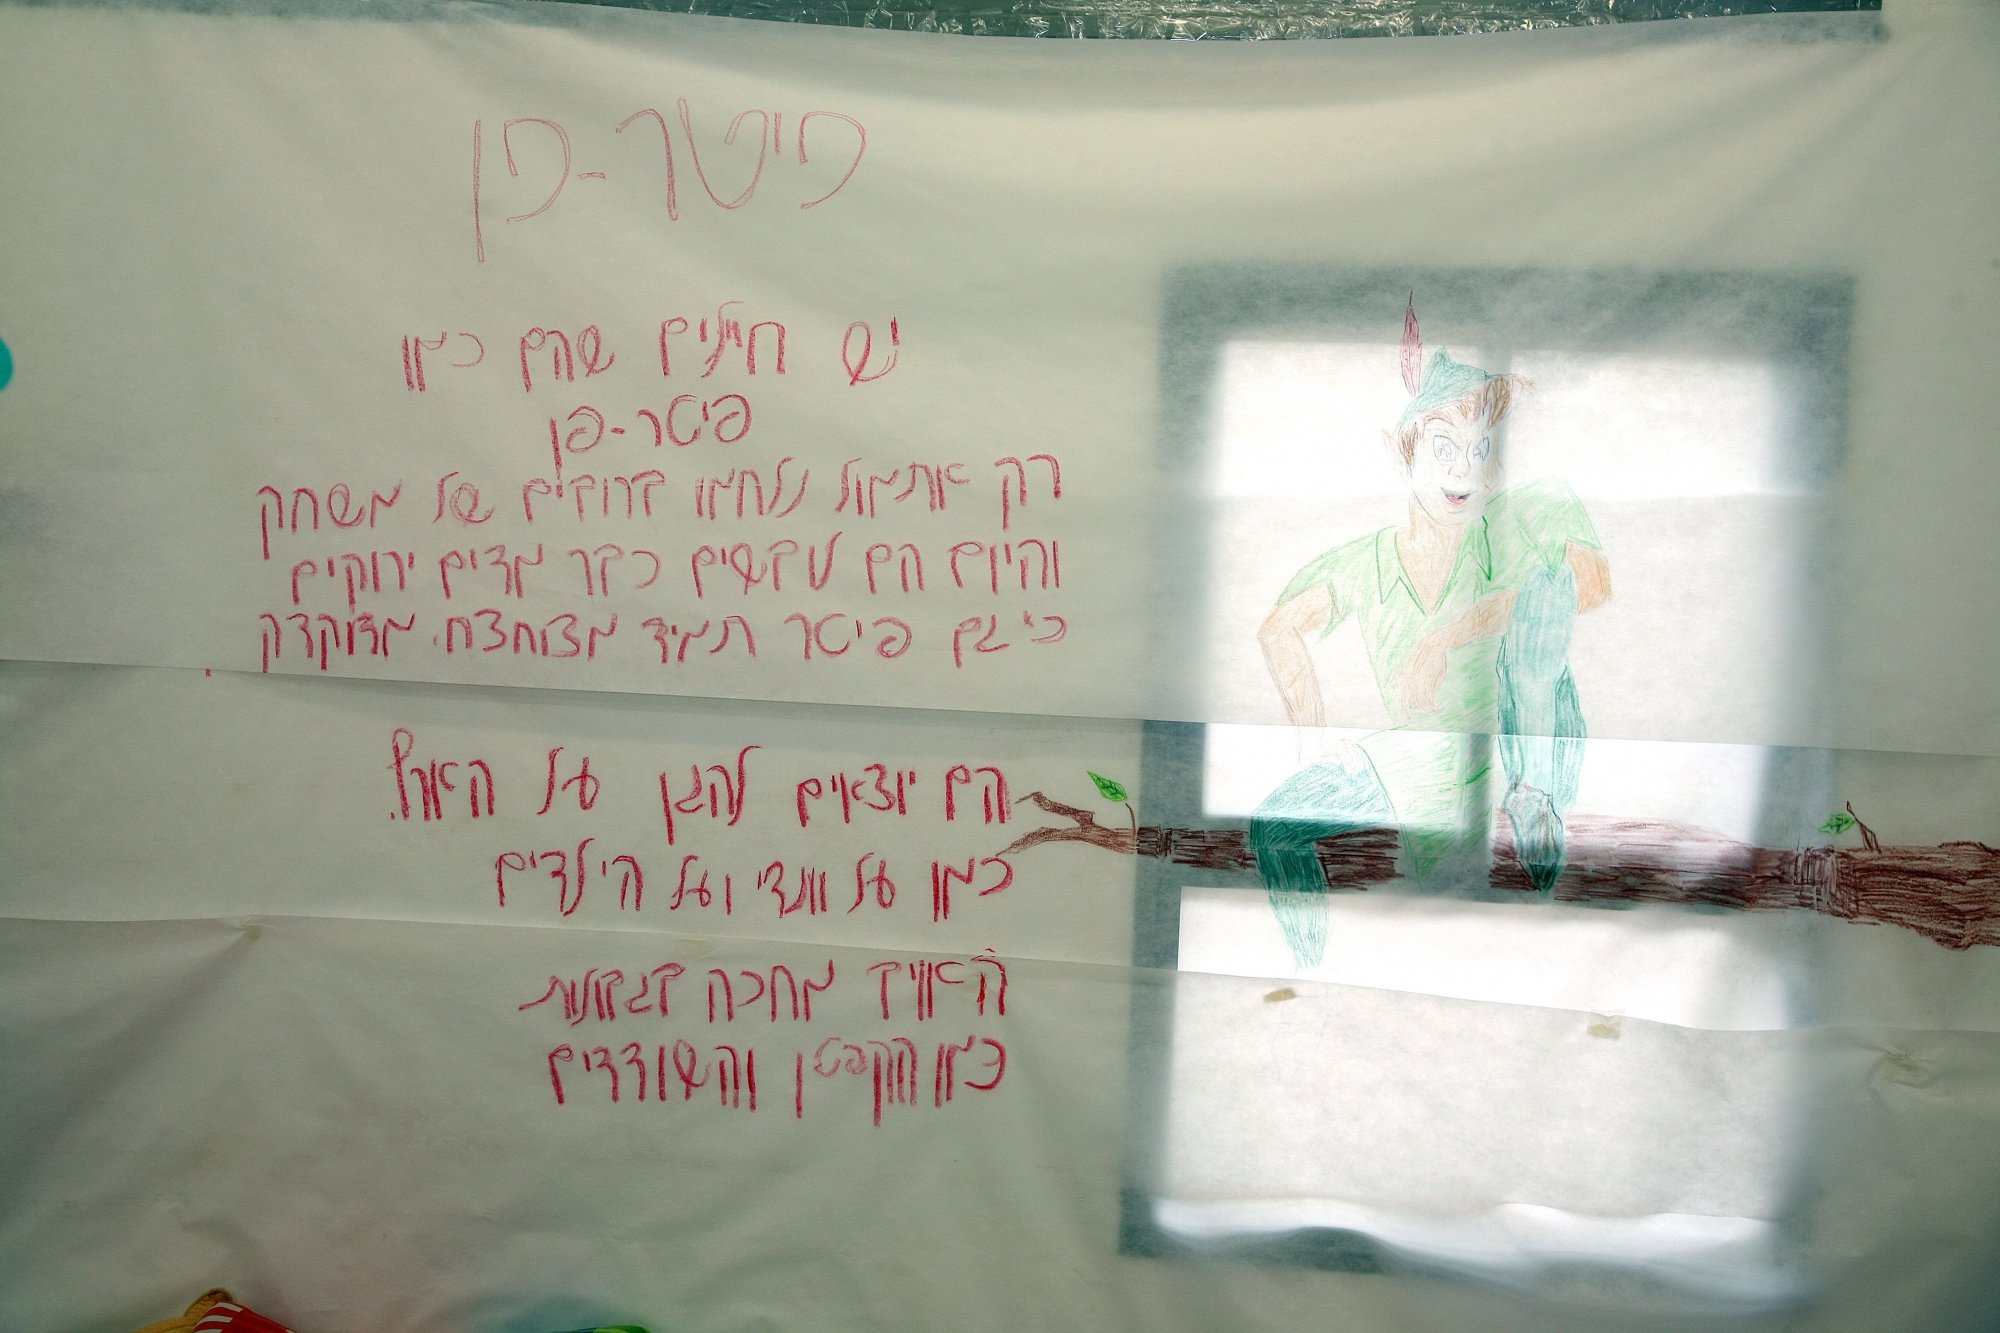 פיטר-פן
יש חיילים שהם כמו
פיטר-פן
רק אתמול נלחמו ברובים של משחק
והיום הם לובשים כבר מדים ירוקים
כי גם פיטר תמיד מצוחצח. מדוקדק
הם יוצאים להגן על הארץ.
כמו על וונדי ועל הילדים
האויב מחכה בגבולות
כמו הקפטן והשודדים